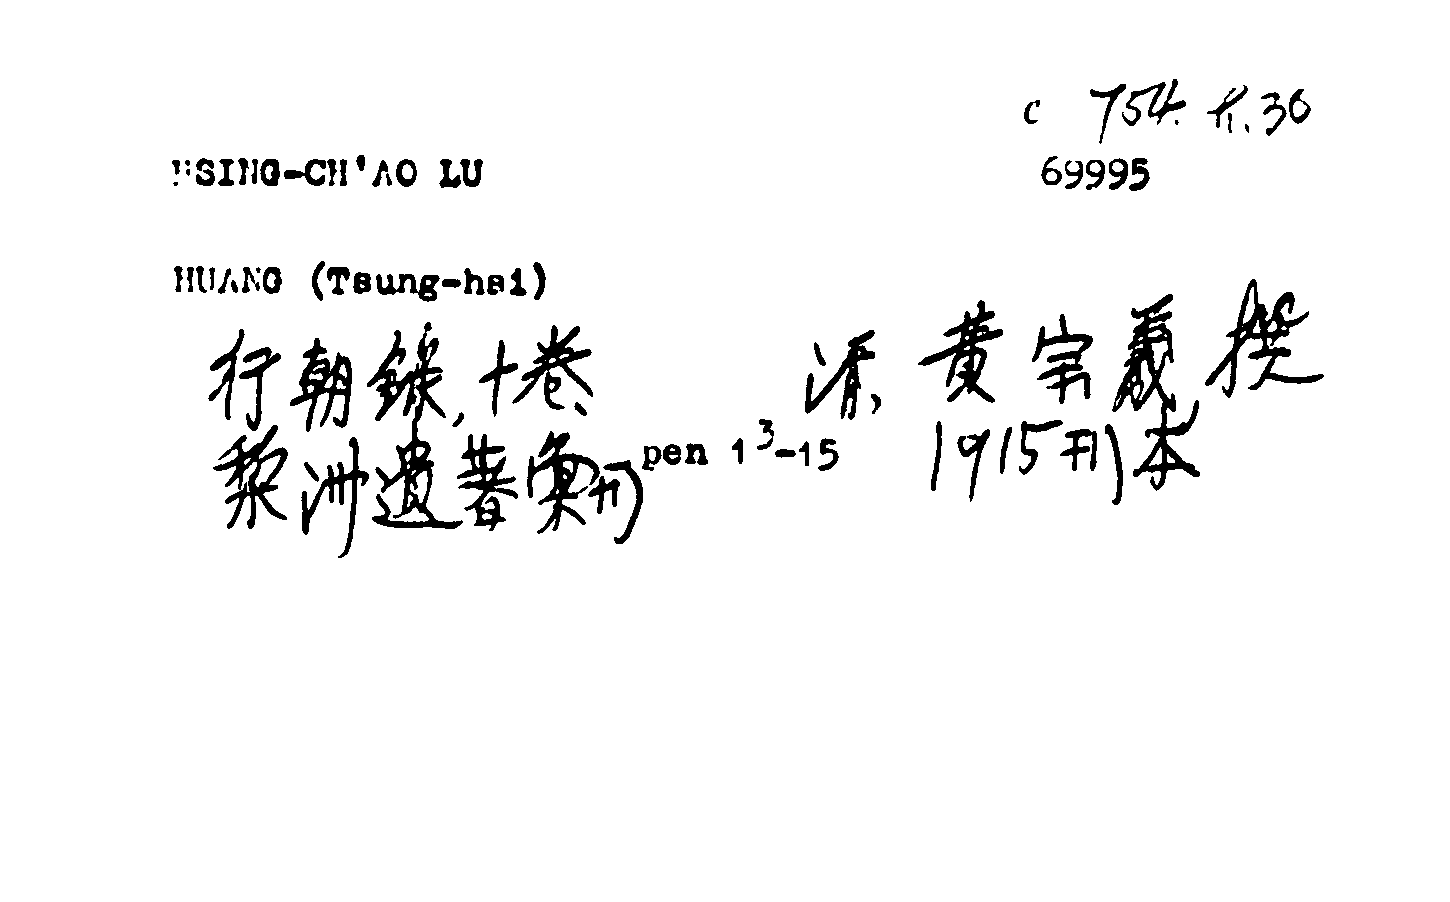 c 754. h. 30
HSING-CH'AO LU 69995
HUANG (Tsung-hsi)
行朝錄, 十卷 清, 黃宗羲撰
黎洲遺著彙刊 pen 13-15 1915刊本